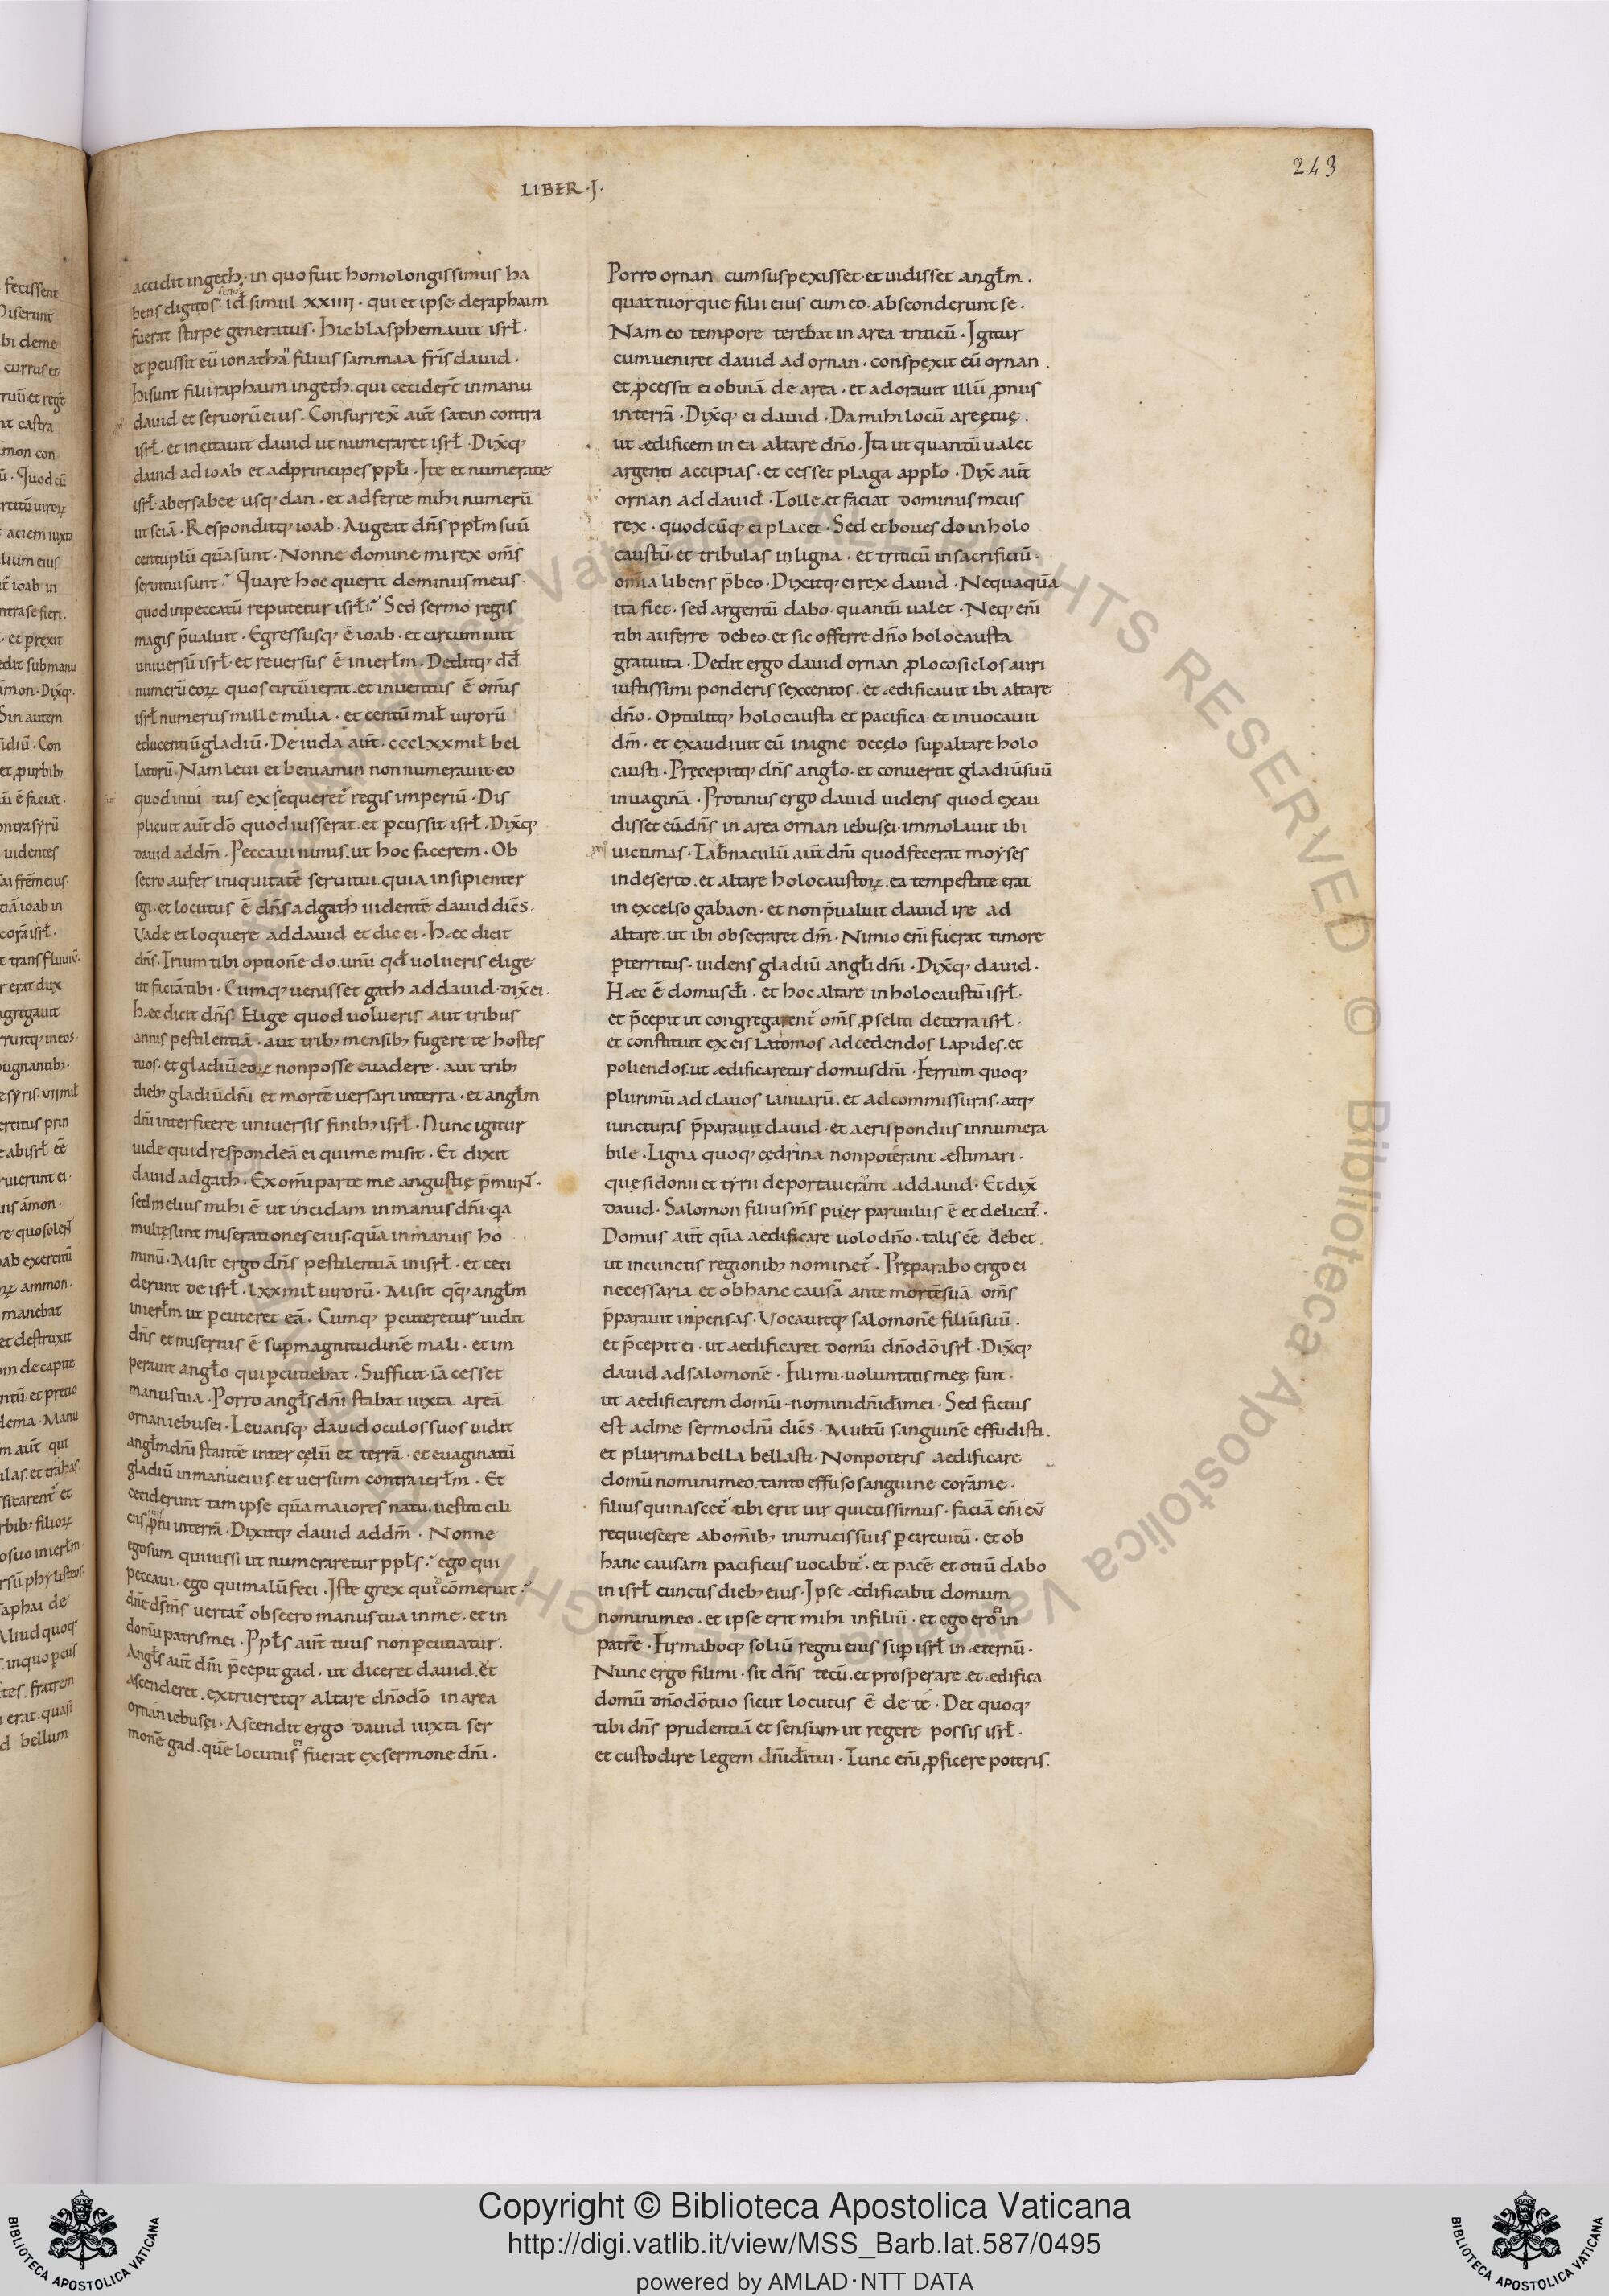 243
LIBER · J ·
accidit in geth · in quo fuit homo longissimus ha
bens digitos · senos id̄ simul xxiiii · qui et ipse de raphaim
fuerat stirpe generatus · hic blasphemauit isrł ·
et ꝑcussit eū ionathan filius sammaa fris̄ dauid ·
hi sunt filii raphaim in geth · qui cecider̄t in manu
dauid et seruorū eius · Consurrex̄ aut̄ satan contra
isrł · et incitauit dauid ut numeraret isrł · Dix̄q;
dauid ad ioab et ad principes ppłi · Ite et numerate
isrł a bersabee usq; dan · et adferte mihi numerū
ut sciā · Responditq; ioab · Augeat dn̄s ppłm suū
centuplū quā sunt · Nonne domine mi rex om̄s
serui tui sunt · Quare hoc querit dominus meus ·
quod in peccatū reputetur isrłi · Sed sermo regis
magis p̄ualuit · Egressusq; ē ioab · et circumiuit
uniuersū isrł · et reuersus ē in ierłm · Deditq; dd̄
numerū eoꝝ quos circūierat · et inuentus ē om̄is
isrł numerus mille milia · et centū mił uirorū
educentiū gladiū · De iuda aut̄ · cccclxx mił bel
latorū · Nam leui et beniamin non numerauit · eo
quod inui tus exsequeret regis imperiū · Dis
plicuit aut̄ dō quod iusserat · et ꝑcussit isrł · Dix̄q;
dauid ad dm̄ · Peccaui nimis · ut hoc facerem · Ob
secro aufer iniquitatē serui tui · quia insipienter
egi · et locutus ē dn̄s ad gath uidentē dauid dic̄s ·
Uade et loquere ad dauid et dic ei · Hæc dicit
dn̄s · Trium tibi optionē do · unū qd̄ uolueris elige
ut faciā tibi · Cumq; uenisset gath ad dauid · dix̄ ei ·
hæc dicit dn̄s · Elige quod uolueris · aut tribus
annis pestilentiā · aut trib; mensib; fugere te hostes
tuos · et gladiū eoꝝ non posse euadere · aut trib;
dieb; gladiū dn̄i et mortē uersari in terra · et angłm
dn̄i interficere uniuersis finib; isrł · Nunc igitur
uide quid respondeā ei qui me misit · Et dixit
dauid ad gath · Ex om̄i parte me angustię p̄munt̄ ·
sed melius mihi ē ut incidam in manus dn̄i · qa
multę sunt miserationes eius · quā in manus ho
minū · Misit ergo dn̄s pestilentiā in isrł · et ceci
derunt de isrł · lxx mił uirorū · Misit qq; angłm
in ierłm ut ꝑcuteret eā · Cumq; ꝑcuteretur uidit
dn̄s et misertus ē suꝑ magnitudinē mali · et im
perauit angło qui ꝑcutiebat · Sufficit iā cesset
manus tua · Porro angłs dn̄i stabat iuxta areā
ornan iebusei · Leuansq; dauid oculos suos uidit
angłm dn̄i stantē inter cęlū et terrā · et euaginatū
gladiū in manu eius · et uersum contra ierłm · Et
ceciderunt tam ipse quā maiores natu · uestiti cili
ciis proni in terrā · Dixitq; dauid ad dm̄ · Nonne
ego sum qui iussi ut numeraretur ppłs · ego qui
peccaui · ego qui malū feci · Iste grex quid cōmeruit ·
dn̄e ds̄ ms̄ uertat̄ obsecro manus tua in me · et in
domū patris mei · Ppłs aut̄ tuus non ꝑcutiatur ·
Angłs aut̄ dn̄i p̄cepit gad · ut diceret dauid · et
ascenderet · extrueretq; altare dn̄o dō in area
ornan iebusęi · Ascendit ergo dauid iuxta ser
monē gad · quē locutus ei fuerat ex sermone dn̄i ·
Porro ornan cum suspexisset · et uidisset angłm ·
quattuorque filii eius cum eo · absconderunt se ·
Nam eo tempore terebat in area triticū · Igitur
cum ueniret dauid ad ornan · conspexit eū ornan ·
et ꝓcessit ei obuiā de area · et adorauit illū ꝓnus
in terrā · Dix̄q; ei dauid · Da mihi locū areę tuę ·
ut ædificem in ea altare dn̄o · Ita ut quantū ualet
argenti accipias · et cesset plaga a ppło · Dix̄ aut̄
ornan ad dauid · Tolle · et faciat dominus meus
rex · quodcūq; ei placet · Sed et boues do in holo
caustū · et tribulas in ligna · et triticū in sacrificiū ·
omia libens p̄beo · Dixitq; ei rex dauid · Nequaquā
ita fiet · sed argentū dabo · quantū ualet · Neq; eni̅
tibi auferre debeo · et sic offerre dn̄o holocausta
gratuita · Dedit ergo dauid ornan ꝓ loco · siclos auri
iustissimi ponderis sexcentos · et ædificauit ibi altare
dn̄o · Optulitq; holocausta et pacifica · et inuocauit
dm̄ · et exaudiuit eū in igne de cęlo suꝑ altare holo
causti · Pręcepitq; dn̄s angło · et conuertit gladiū suū
in uaginā · Protinus ergo dauid uidens quod exau
disset eū dn̄s in area ornan iebusęi · immolauit ibi
uictimas · Tab̄naculū aut̄ dn̄i quod fecerat moyses
in deserto · et altare holocaustoꝝ · ea tempestate erat
in excelso gabaon · et non p̄ualuit dauid ire ad
altare · ut ibi obsecraret dm̄ · Nimio eni̅ fuerat timore
ꝑterritus · uidens gladiū angłi dn̄i · Dix̄q; dauid ·
Hæc ē domus di̅ · et hoc altare in holocaustū isrł ·
et p̄cepit ut congregarent̄ om̄s ꝓseliti de terra isrł ·
et constituit ex eis latomos ad cedendos lapides · et
poliendos · ut ædificaretur domus dn̄i · Ferrum quoq;
plurimū ad clauos ianuarū · et ad commissuras · atq;
iuncturas p̄parauit dauid · et aeris pondus innumera
bile · Ligna quoq; cędrina non poterant æstimari ·
quę sidonii et tyrii deportauerant ad dauid · Et dix̄
dauid · Salomon filius ms̄ puer paruulus ē et delicat̄ ·
Domus aut̄ quā aedificare uolo dn̄o · talis eē debet ·
ut in cunctis regionib; nominet̄ · Pręparabo ergo ei
necessaria · et ob hanc causā ante mortē suā om̄s
p̄parauit inpensas · Vocauitq; salomonē filiū suū ·
et p̄cepit ei · ut aedificaret domū dn̄o dō isrł · Dix̄q;
dauid ad salomonē · Fili mi · uoluntatis meę fuit ·
ut aedificarem domū nomini dn̄i di̅ mei · Sed factus
est ad me sermo dn̄i dic̄s · Multū sanguinē effudisti ·
et plurima bella bellasti · Non poteris aedificare
domū nomini meo · tanto effuso sanguine corā me ·
filius qui nascet̄ tibi erit uir quietissimus · faciā eni̅ eū
requiescere ab om̄ib; inimicis suis ꝑ circuitū · et ob
hanc causam pacificus uocabit̄ · et pacē et otiū dabo
in isrł cunctis dieb; eius · Ipse ædificabit domum
nomini meo · et ipse erit mihi in filiū · et ego ero ei in
patrē · Firmaboq; soliū regni eius suꝑ isrł in æternū ·
Nunc ergo fili mi · sit dn̄s tecū · et prosperare · et ædifica
domū dn̄o dō tuo sicut locutus ē de te · Det quoq;
tibi dn̄s prudentiā et sensum · ut regere possis isrł ·
et custodire legem dn̄i di̅ tui · Tunc eni̅ ꝓficere poteris ·
Copyright © Biblioteca Apostolica Vaticana
http://digi.vatlib.it/view/MSS_Barb.lat.587/0495
powered by AMLAD·NTT DATA